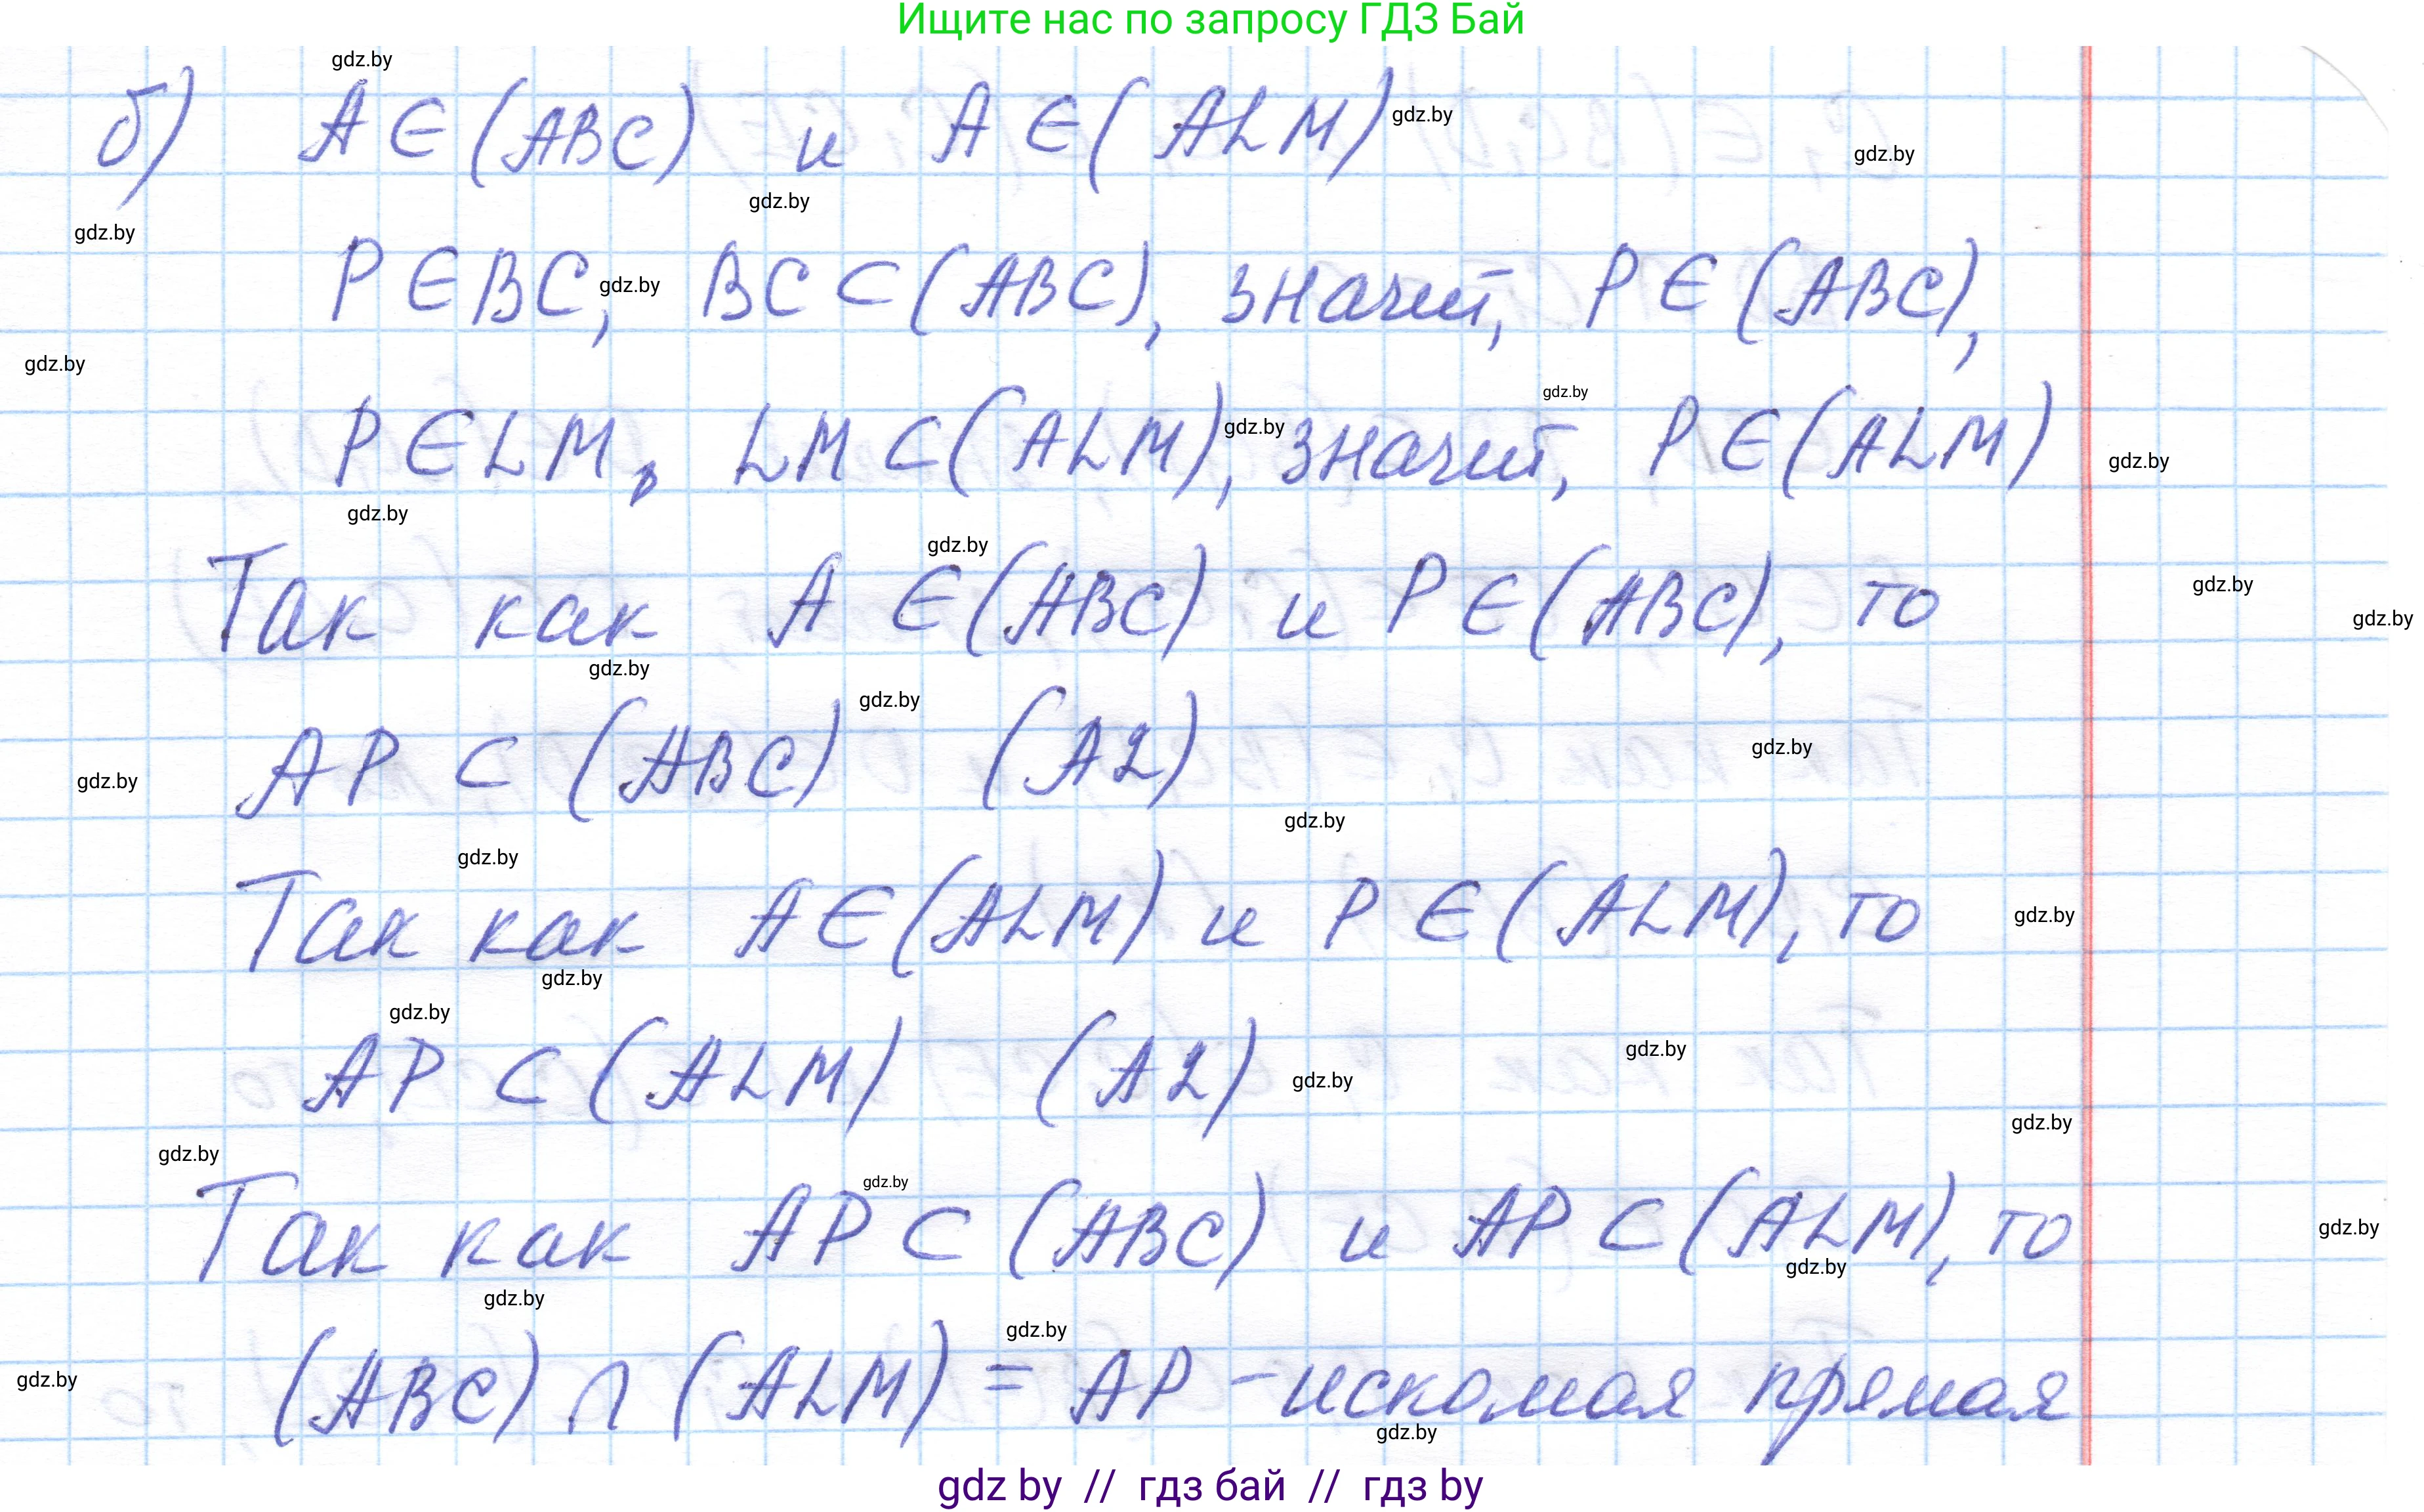 Ищите нас по запросу ГДЗ Бай
gdz.by
б) A ∈ (ABC) и A ∈ (ALM)
gdz.by
gdz.by
gdz.by
gdz.by
P ∈ BC, BC ⊂ (ABC), значит, P ∈ (ABC),
gdz.by
gdz.by
gdz.by
P ∈ LM, LM ⊂ (ALM), значит, P ∈ (ALM)
gdz.by
gdz.by
gdz.by
gdz.by
Так как A ∈ (ABC) и P ∈ (ABC), то
gdz.by
gdz.by
gdz.by
gdz.by
AP ⊂ (ABC) (A2)
gdz.by
gdz.by
gdz.by
gdz.by
Так как A ∈ (ALM) и P ∈ (ALM), то
gdz.by
gdz.by
gdz.by
gdz.by
AP ⊂ (ALM) (A2)
gdz.by
gdz.by
gdz.by
gdz.by
Так как AP ⊂ (ABC) и AP ⊂ (ALM), то
gdz.by
gdz.by
gdz.by
gdz.by
(ABC) ∩ (ALM) = AP - искомая прямая
gdz.by
gdz.by
gdz by // гдз бай // гдз by